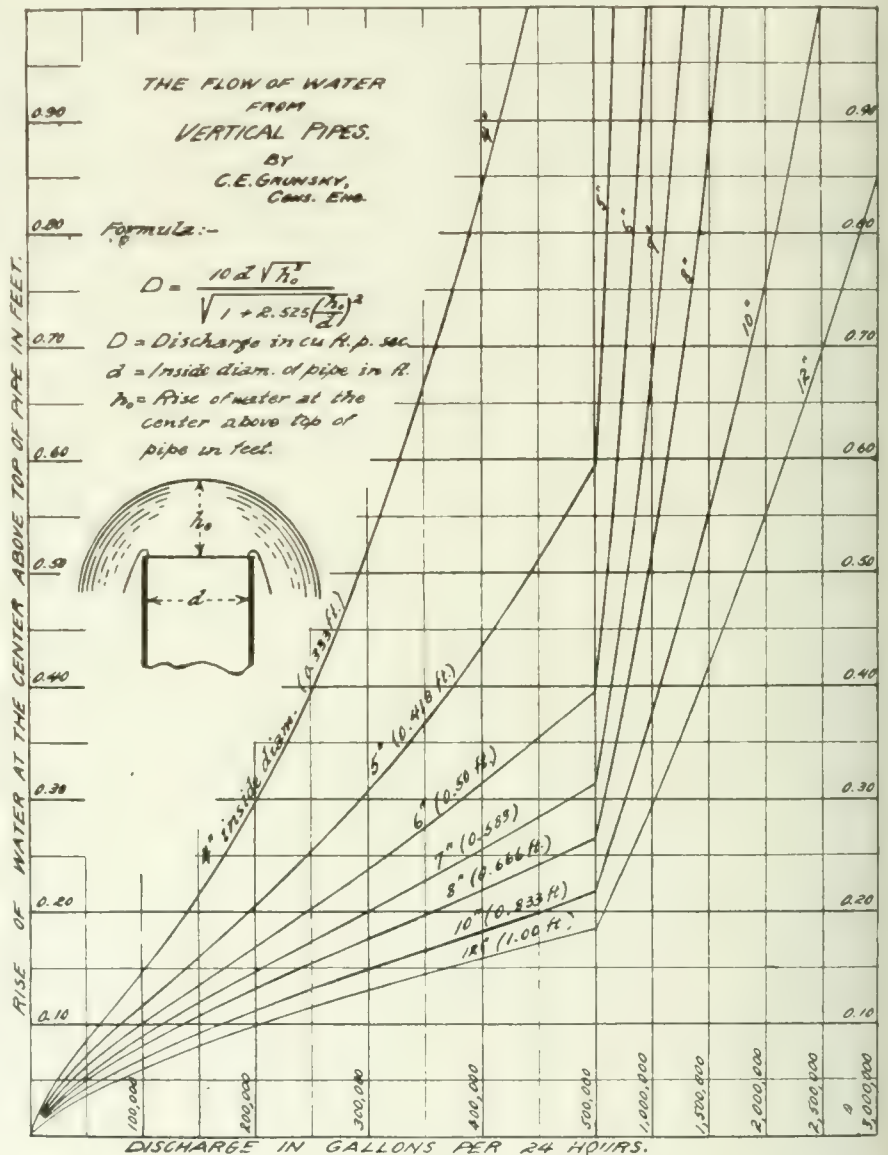 THE FLOW OF WATER
FROM
VERTICAL PIPES.
BY
C.E. GRUNSKY,
CONS. ENG.
Formula:-
D = 10 d √h₀³ / √(1 + 2.525(h₀/d)²
D = Discharge in cu ft. p. sec
d = Inside diam. of pipe in ft.
h₀ = Rise of water at the
center above top of
pipe in feet.
h₀
d
RISE OF WATER AT THE CENTER ABOVE TOP OF PIPE IN FEET.
0.90
0.80
0.70
0.60
0.50
0.40
0.30
0.20
0.10
4" inside diam. (0.333 ft.)
5" (0.418 ft.)
6" (0.50 ft.)
7" (0.583)
8" (0.666 ft.)
10" (0.833 ft)
12" (1.00 ft.)
4"
5"
6"
7"
8"
10"
12"
0.90
0.80
0.70
0.60
0.50
0.40
0.30
0.20
0.10
100,000
200,000
300,000
400,000
500,000
1,000,000
1,500,000
2,000,000
2,500,000
3,000,000
DISCHARGE IN GALLONS PER 24 HOURS.